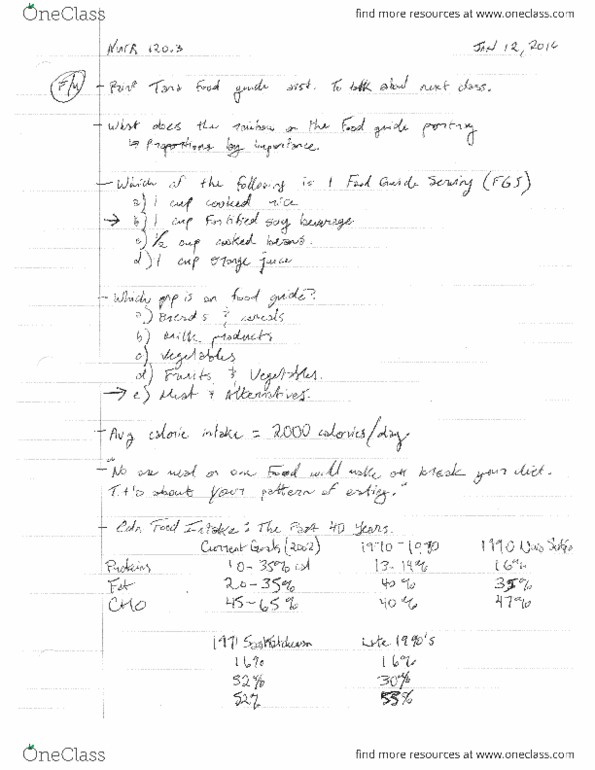 OneClass
find more resources at www.oneclass.com
NUTR 120.3
JAN 12, 2014
- Print Food guide To talk about next class.
- What does the rainbow on the Food guide portray
↳ Proportions by importance.
- Which of the following is 1 Food Guide Serving (FGS)
a) 1 cup cooked rice
→ b) 1 cup Fortified soy beverage
c) 1/2 cup cooked beans.
d) 1 cup orange juice
- Which grp is on food guide?
a) Breads & cereals
b) Milk products
c) Vegetables
d) Fruits & Vegetables.
→ e) Meat & Alternatives.
- Avg calorie intake = 2000 calories/day.
- "No one meal or one Food will make or break your diet.
It's about your pattern of eating."
- Cdn. Food Intake: The Past 40 Years.
Current Goals (2002) 1970-1980 1990
Proteins 10-35% 13-14% 16%
Fat 20-35% 40% 35%
CHO 45-65% 40% 47%
Saskatchewan Late 1990's
16% 16%
32% 30%
52% 55%
OneClass
find more resources at www.oneclass.com